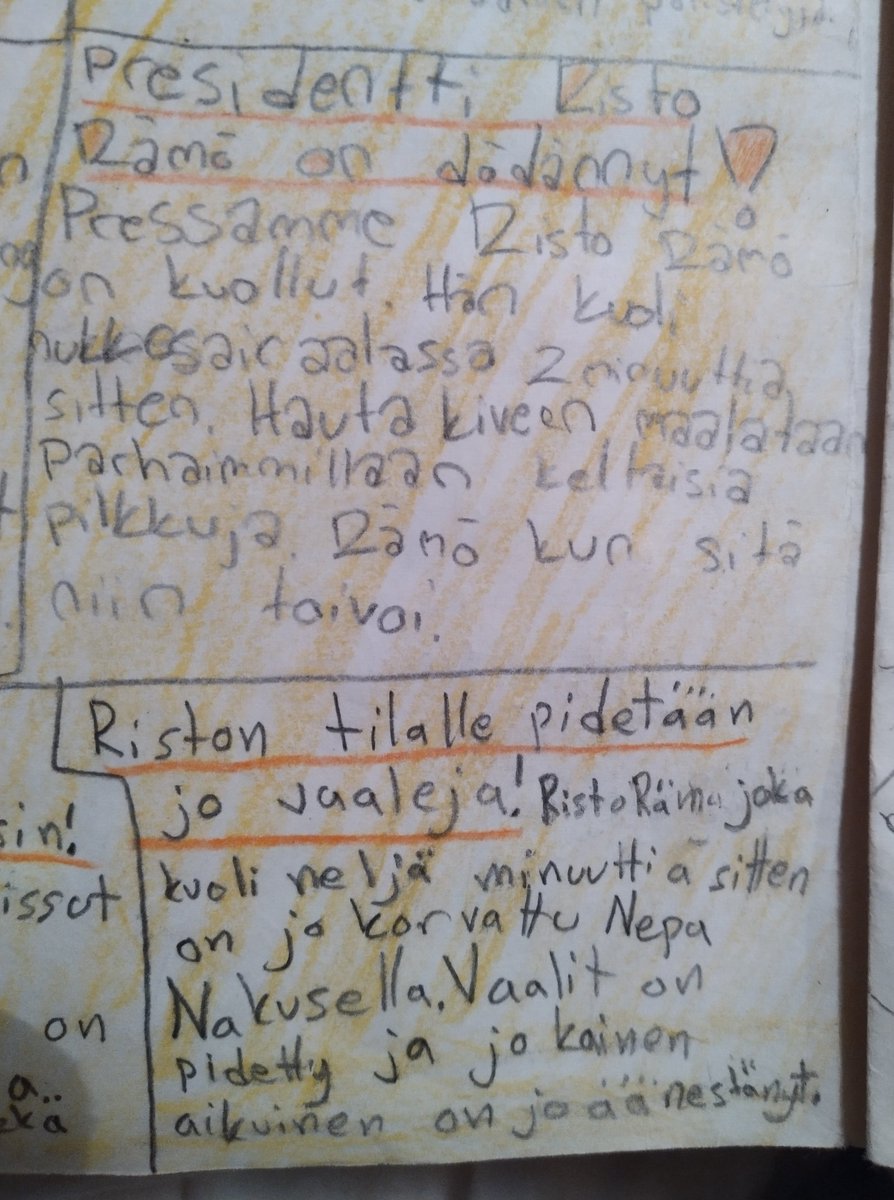 Presidentti Risto
Rämö on dödännyt!
Pressamme Risto Rämö
on kuollut. Hän kuoli
nukkesairaalassa 2 minuuttia
sitten. Hautakiveen maalataan
Parhaimmillaan keltaisia
pilkkuja. Rämö kun sitä
niin toivoi.
Riston tilalle pidetään
jo vaaleja! Risto Rämö joka
kuoli neljä minuuttia sitten
on jo korvattu Nepa
Nakusella. Vaalit on
pidetty ja jokainen
aikuinen on jo äänestänyt.
sin!
issut
on